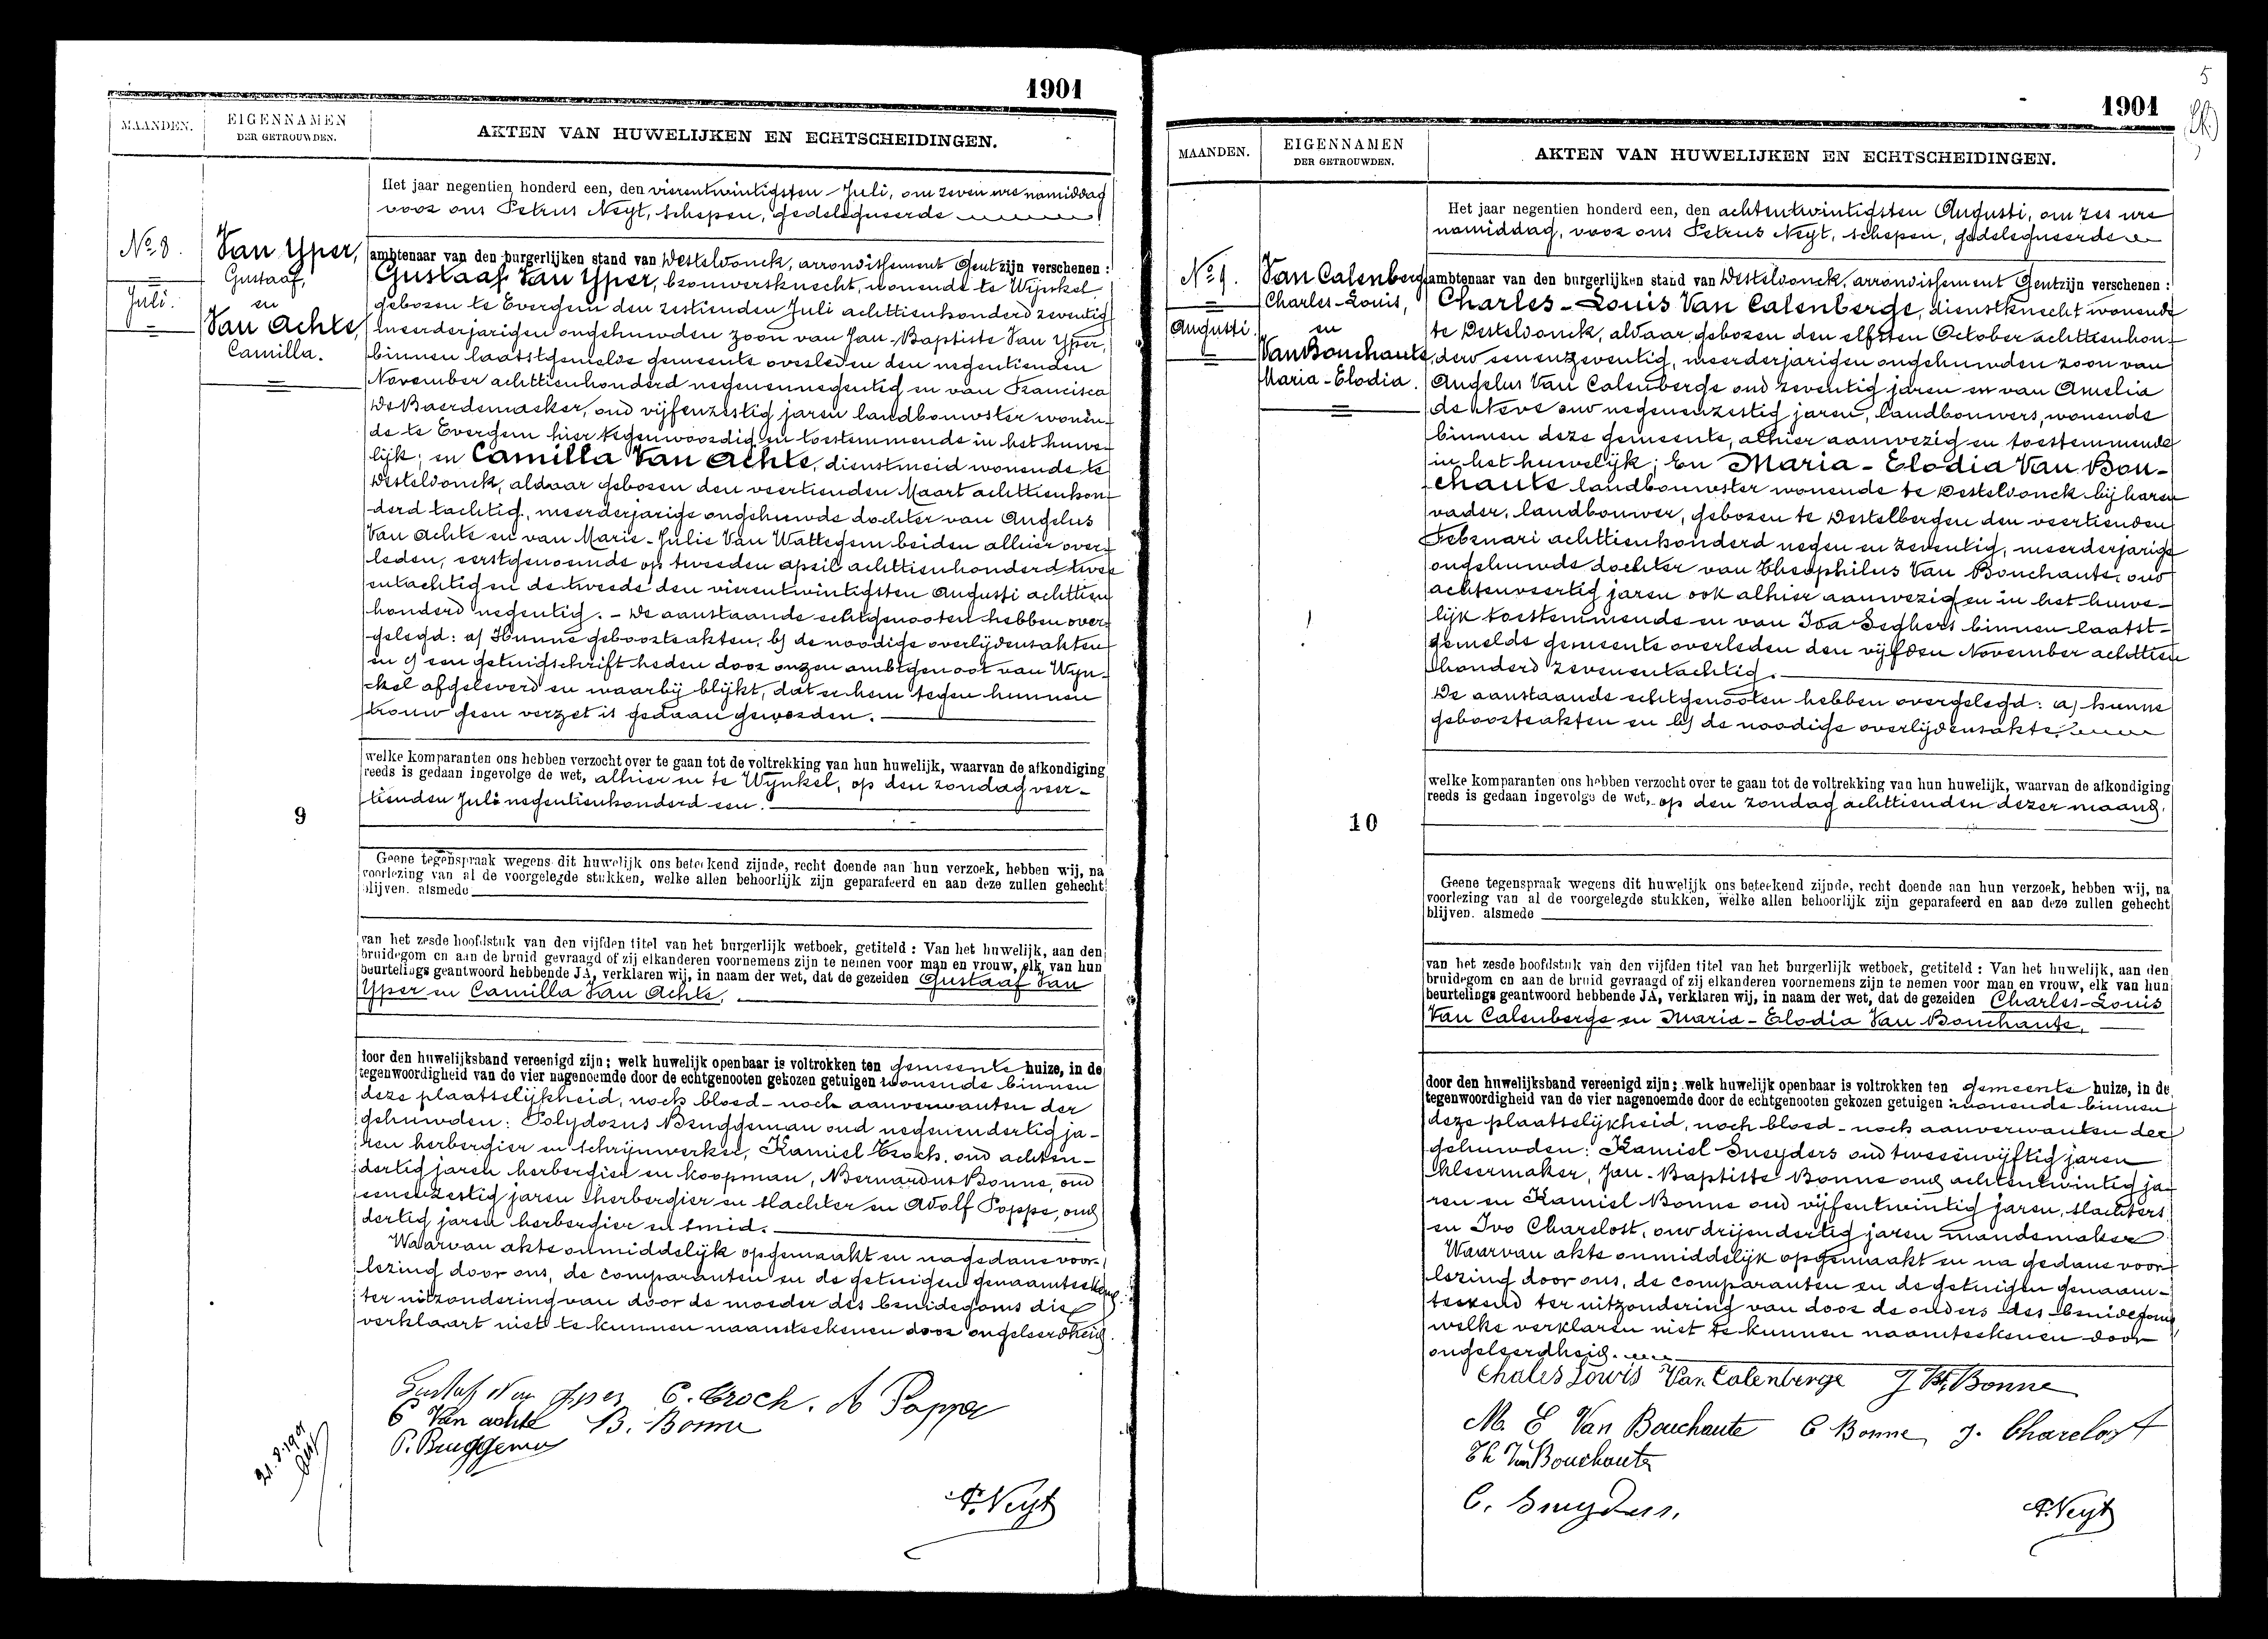 1901
MAANDEN.
EIGENNAMEN
DER GETROUWDEN.
AKTEN VAN HUWELIJKEN EN ECHTSCHEIDINGEN.
No 8.
Juli.
Van Yper,
Gustaaf,
en
Van Achte,
Camilla.
Het jaar negentien honderd een, den vierentwintigsten Juli, om zeven ure namiddag
voor ons Petrus Neyt, schepen, gedelegueerde
ambtenaar van den burgerlijken stand van Desteldonck, arrondissement Gent zijn verschenen :
Gustaaf Van Yper, brouwersknecht, wonende te Wijnkel
geboren te Evergem den zestienden Juli achttienhonderd zeventig
meerderjarigen ongehuwden zoon van Jan-Baptiste Van Yper,
binnen laatstgemelde gemeente overleden den negentienden
November achttienhonderd negenennegentig en van Francisca
De Baerdemaeker, oud vijfenzestig jaren landbouwster wonen-
de te Evergem hier tegenwoordig en toestemmende in het huwe-
lijk; en Camilla Van Achte, dienstmeid wonende te
Desteldonck, aldaar geboren den veertienden Maart achttienhon-
derd tachtig, meerderjarige ongehuwde dochter van Angelus
Van Achte en van Marie-Julie Van Wattegem beiden alhier over-
leden, eerstgenoemde op tweeden april achttienhonderd twee
entachtig en de tweede den vierentwintigsten Augusti achttien
honderd negentig. - De aanstaande echtgenooten hebben over-
gelegd: a) Hunne geboorteakten, b) de noodige overlijdensakten
en c) een getuigschrift heden door onzen ambtgenoot van Wyn-
kel afgeleverd en waarbij blijkt, dat er hem tegen hunnen
trouw geen verzet is gedaan geworden.
welke komparanten ons hebben verzocht over te gaan tot de voltrekking van hun huwelijk, waarvan de afkondiging
reeds is gedaan ingevolge de wet, alhier en te Wynkel, op den zondag veer-
tienden Juli negentienhonderd een.
9
Geene tegenspraak wegens dit huwelijk ons beteekend zijnde, recht doende aan hun verzoek, hebben wij, na
voorlezing van al de voorgelegde stukken, welke allen behoorlijk zijn geparafeerd en aan deze zullen gehecht
blijven. alsmede
van het zesde hoofdstuk van den vijfden titel van het burgerlijk wetboek, getiteld : Van het huwelijk, aan den
bruidegom en aan de bruid gevraagd of zij elkanderen voornemens zijn te nemen voor man en vrouw, elk van hun
beurtelings geantwoord hebbende JA, verklaren wij, in naam der wet, dat de gezeiden Gustaaf Van
Yper en Camilla Van Achte,
door den huwelijksband vereenigd zijn; welk huwelijk openbaar is voltrokken ten gemeente huize, in de
tegenwoordigheid van de vier nagenoemde door de echtgenooten gekozen getuigen wonende binnen
deze plaatselijkheid, noch bloed- noch aanverwanten der
gehuwden: Polydorus Bruggeman oud negenendertig ja-
ren herbergier en schrijnwerker, Kamiel Croch, oud achten-
dertig jaren herbergier en koopman, Bernardus Bonne, oud
eenenzestig jaren herbergier en slachter en Adolf Poppe, oud
dertig jaren herbergier en smid.
Waarvan akte onmiddelijk opgemaakt en na gedane voor-
lezing door ons, de comparanten en de getuigen genaamteekend
ter uitzondering van door de moeder des bruidegoms die
verklaart niet te kunnen naamteekenen door ongeleerdheid.
Gustaf Van Yper C. Croch. A Poppe
C Van achte B. Bonne
P. Bruggeman
P. Neyt
5
1901
MAANDEN.
EIGENNAMEN
DER GETROUWDEN.
AKTEN VAN HUWELIJKEN EN ECHTSCHEIDINGEN.
No 9.
Augusti.
Van Calenberge
Charles-Louis,
en
Van Bouchaute,
Maria-Elodia.
Het jaar negentien honderd een, den achtentwintigsten Augusti, om zes ure
namiddag, voor ons Petrus Neyt, schepen, gedelegueerde
ambtenaar van den burgerlijken stand van Desteldonck, arrondissement Gent zijn verschenen :
Charles-Louis Van Calenberge, dienstknecht wonende
te Desteldonck, aldaar geboren den elfsten October achttienhon-
derd eenenzeventig, meerderjarigen ongehuwden zoon van
Angelus Van Calenberge oud zeventig jaren en van Amelia
de Neve oud negenenzestig jaren, landbouwers, wonende
binnen deze gemeente, alhier aanwezig en toestemmende
in het huwelijk; En Maria-Elodia Van Bou-
chaute landbouwster wonende te Desteldonck bij haren
vader, landbouwer, geboren te Destelbergen den veertienden
Februari achttienhonderd negen en zeventig, meerderjarige
ongehuwde dochter van Theophilus Van Bouchaute, oud
achtenveertig jaren ook alhier aanwezig en in het huwe-
lijk toestemmende en van Ida Seghers binnen laatst-
gemelde gemeente overleden den vijfden November achttien
honderd zevenentachtig.
De aanstaande echtgenooten hebben overgelegd: a) hunne
geboorteakten en b) de noodige overlijdensakte.
welke komparanten ons hebben verzocht over te gaan tot de voltrekking van hun huwelijk, waarvan de afkondiging
reeds is gedaan ingevolge de wet, op den zondag achttienden dezer maand.
10
Geene tegenspraak wegens dit huwelijk ons beteekend zijnde, recht doende aan hun verzoek, hebben wij, na
voorlezing van al de voorgelegde stukken, welke allen behoorlijk zijn geparafeerd en aan deze zullen gehecht
blijven. alsmede
van het zesde hoofdstuk van den vijfden titel van het burgerlijk wetboek, getiteld : Van het huwelijk, aan den
bruidegom en aan de bruid gevraagd of zij elkanderen voornemens zijn te nemen voor man en vrouw, elk van hun
beurtelings geantwoord hebbende JA, verklaren wij, in naam der wet, dat de gezeiden Charles-Louis
Van Calenberge en Maria-Elodia Van Bouchaute,
door den huwelijksband vereenigd zijn; welk huwelijk openbaar is voltrokken ten gemeente huize, in de
tegenwoordigheid van de vier nagenoemde door de echtgenooten gekozen getuigen wonende binnen
deze plaatselijkheid, noch bloed- noch aanverwanten der
gehuwden: Kamiel Sneyders oud tweeenvijftig jaren
kleermaker, Jan-Baptiste Bonne oud achtentwintig ja-
ren en Kamiel Bonne oud vijfentwintig jaren, slachters
en Ivo Charelost, oud drijendertig jaren mandemaker
Waarvan akte onmiddelijk opgemaakt en na gedane voor-
lezing door ons, de comparanten en de getuigen genaam-
teekend ter uitzondering van door de ouders des bruidegoms
welke verklaren niet te kunnen naamteekenen door
ongeleerdheid.
Chales Lowis Van Calenberge J Bt. Bonne
M. E Van Bouchaute C Bonne J. Charelost
Th Van Bouchaute
C. Sneyders.
P. Neyt